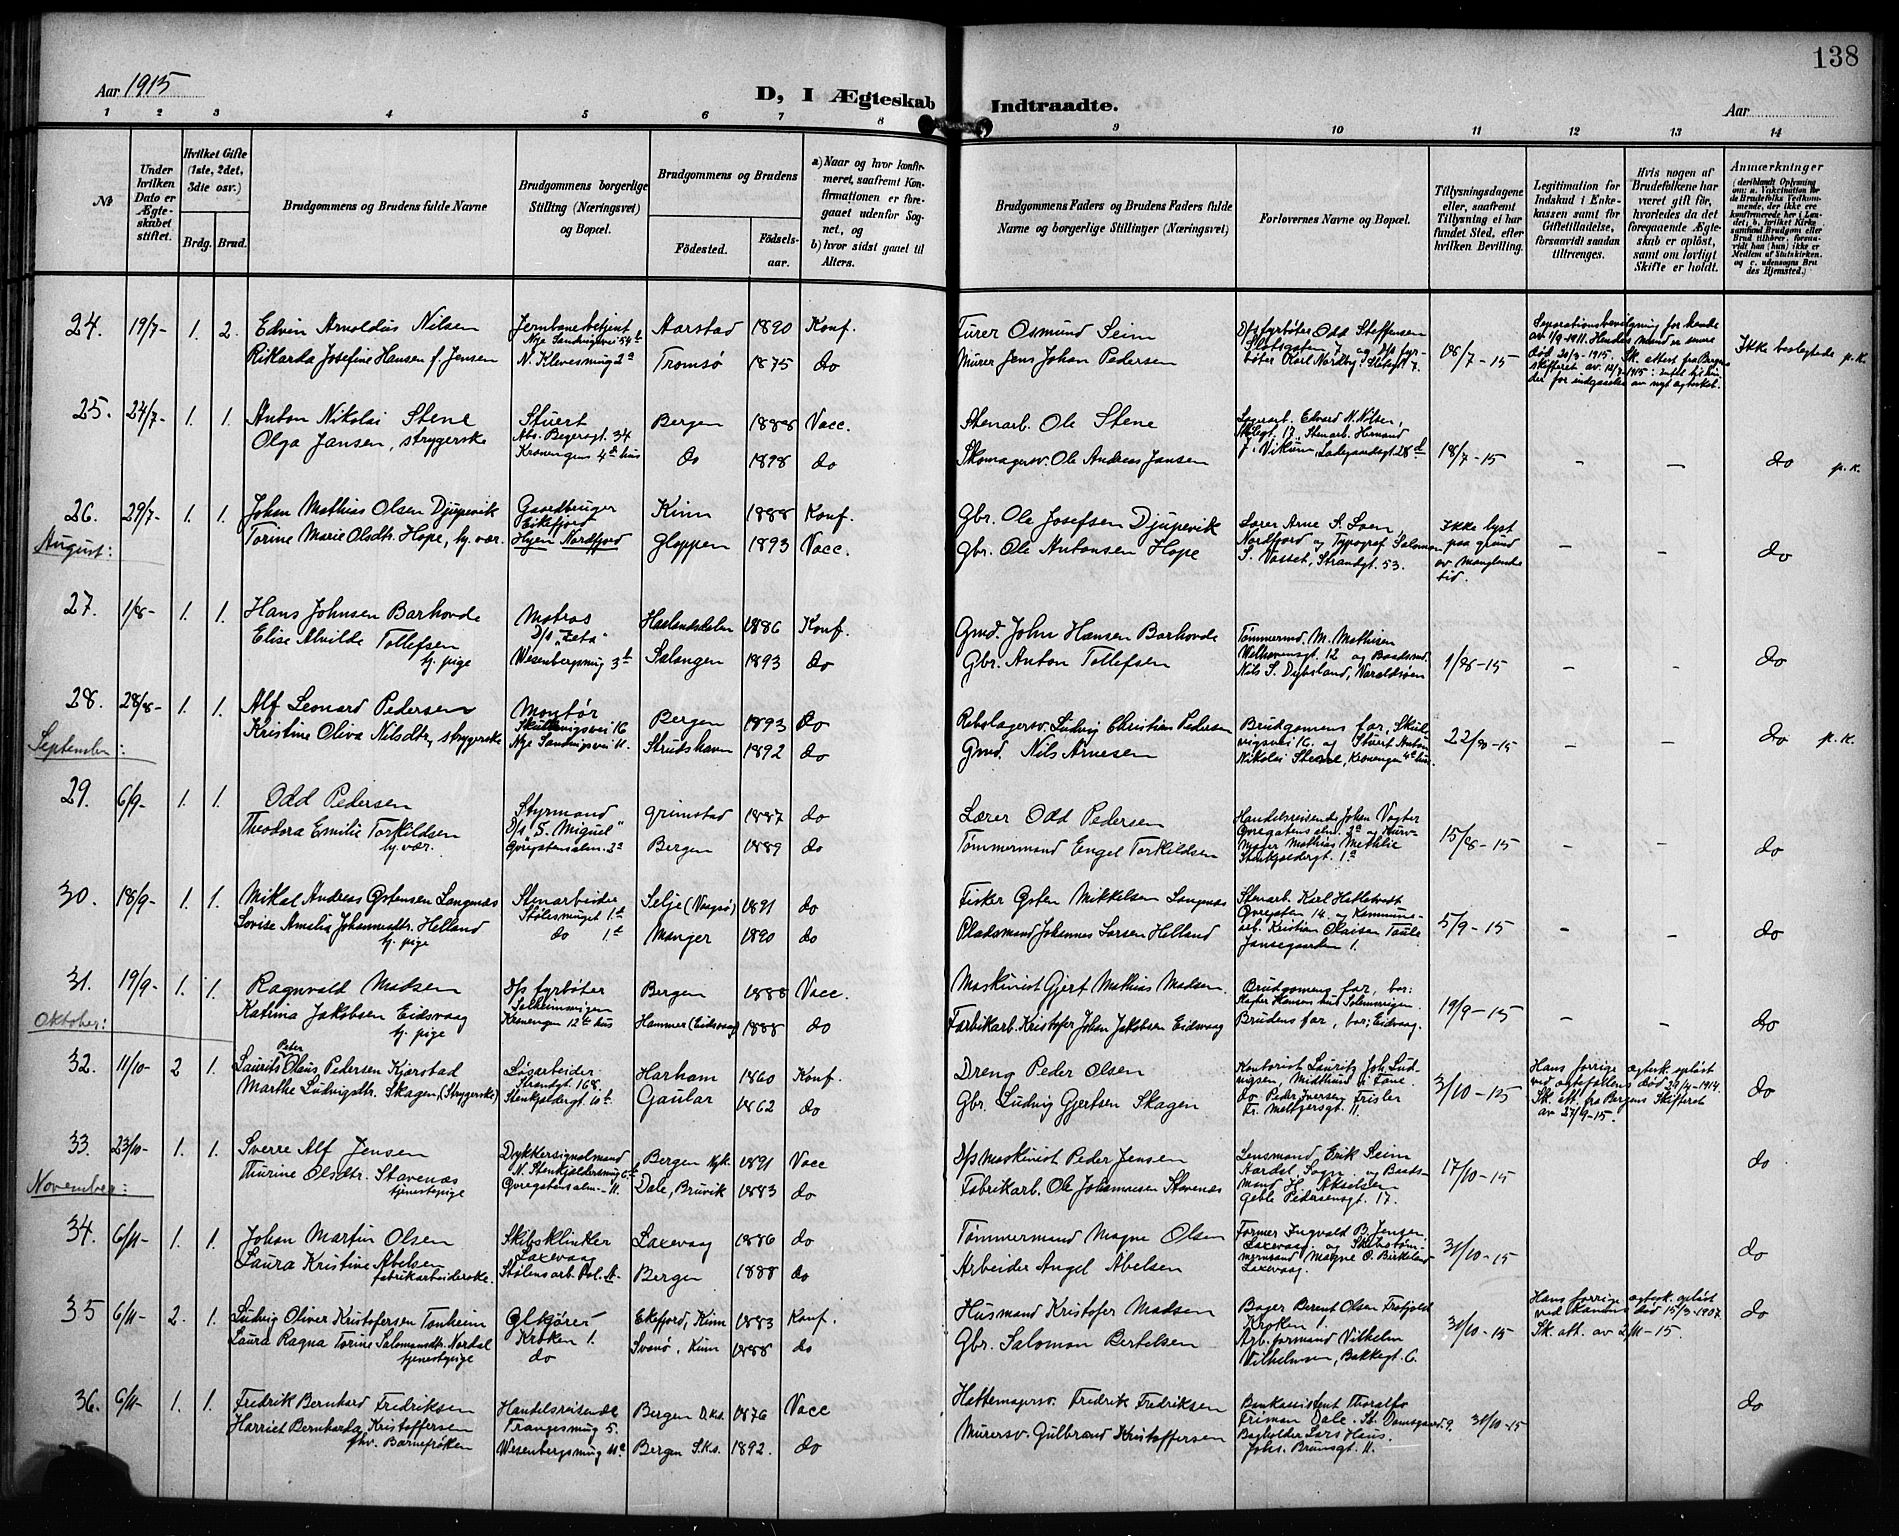 138
Aar 1915
D, I Ægteskab Indtraadte.
Aar
1 2 3 4 5 6 7 8 9 10 11 12 13 14
No
Under hvilken Dato er Ægteskabet stiftet.
Hvilket Gifte (1ste, 2det, 3die osv.)
Brdg. Brud.
Brudgommens og Brudens fulde Navne
Brudgommens borgerlige Stilling (Næringsvei) og Bopæl.
Brudgommens og Brudens
Fødested. Fødselsaar.
a) Naar og hvor konfirmeret, saafremt Konfirmationen er foregaaet udenfor Sognet, og
b) hvor sidst gaaet til Alters.
Brudgommens Faders og Brudens Faders fulde Navne og borgerlige Stillinger (Næringsvei)
Forlovernes Navne og Bopæl.
Tillysningsdagene eller, saafremt Tillysning ei har fundet Sted, efter hvilken Bevilling.
Legitimation for Indskud i Enkekassen samt for Giftetilladelse, forsaavidt saadan tiltrænges.
Hvis nogen af Brudefolkene har været gift før, hvorledes da det foregaaende Ægteskab er opløst, samt om lovligt Skifte er holdt.
Anmærkninger
(deriblandt Oplysning om: a. Vaccination for de Brudefolks Vedkommende, der ikke ere konfirmerede her i Landet; b. hvilket Kirkesamfund Brudgom eller Brud tilhører, forsaavidt han (hun) ikke er Medlem af Statskirken, og c. udensogns Brudes Hjemsted.)
24. 19/7- 1. 2. Edvin Arnoldus Nilsen Jernbanebetjent Aarstad 1890 Konf.
Nye Sandvigsvei 54
Rikarda Josefine Hansen f. Jensen N. Klevesmug 2a Tromsø 1875 do
Turer Osmund Seim D/s fyrbøter Odd Steffensen
Slotsgaten 7 og D/s fyrbøter Karl Nordby, Slotsgt 7.
Murer Jens Johan Pedersen
18/7-15
Separationsbevilgning for hende av 1/9-1911. Hendes mand er senere død 20/3-1915. Sk. attest fra Bergens skifteret
Ikke beslegtede p.k.
25. 24/7- 1. 1. Anton Nikolai Stene Stuert Bergen 1888 Vacc.
Abs. Begersgt. 34
Olga Jansen, strygerske Kroningens 4de hus do 1898 do
Stenarb. Ole Stene
Skomagersv. Ole Andreas Jansen
Edvard N. Nilsen,
17, Stenarb. Hermand
J. Vikum, Ladegaardsgt 28d
18/7-15 - - do p.k.
26. 29/7- 1. 1. Johan Mathias Olsen Djupevik Gaardbruger Kinn 1888 Konf.
Eikefjord
Torine Marie Olsdtr. Hope, hj. vær. Hyen Nordfjord Gloppen 1893 Vacc.
Gbr. Ole Josefsen Djupevik
Gbr. Ole Antonsen Hope
Lærer Arne S. Soen,
Nordfjord og Typograf Salomon
S. Vasset, Strandgt. 53.
Ikke lyst paa grund av manglende tid.
- - do
August:
27. 1/8- 1. 1. Hans Johnsen Barhovde Matros 1886 Konf.
D/s "Zeta"
Elise Alvilde Tollefsen hj. pige Wesenbergsmug 3b Salangen 1893 do
Gmd. John Hansen Barhovde
Gbr. Anton Tollefsen
Tømmermd. M. Mathisen
Welhavensgt. 12 og Baadsmd.
Nils S. Dybsland, Haraldsøen
1/8-15 - - do
28. 28/8- 1. 1. Alf Leonard Pedersen Montør Bergen 1893 do
Skuteviksvei 16
Kristine Oliva Nilsdtr, strygerske Nye Sandvigsvei 11. Strudshavn 1892 do
Rebslagersv. Ludvig Christian Pedersen
Gmd. Nils Arnesen
Brudgomens far, Skutevigsvei 16. og Stuert Anton
Nikolai Stene, Kroningen 4de hus.
22/8-15 - - do p.k.
September:
29. 6/9- 1. 1. Odd Pedersen Styrmand Grimstad 1887 do
D/s "S. Miguel"
Theodora Emilie Torkildsen hj. vær. Øvregatens alm. 2a Bergen 1889 do
Lærer Odd Pedersen
Tømmermand Engel Torkildsen
Handelsreisende Johan Vogter
Øvregatens alm. 2a og Kurvmager Mathias Methlie
Stenkjeldergt. 1a
15/8-15 - - do
30. 18/9- 1. 1. Mikal Andreas Østensen Langenæs Stenarbeider Selje (Vaagsø) 1891 do
Stølesmuget 1b
Lovise Amalia Johannesdtr. Helland hj. pige do 1b Manger 1890 do
Fisker Østen Mikkelsen Langnæs
Pladsmand Johannes Larsen Helland
Stenarb. Karl Hatletvedt
Øvregaten 14. og Kommunearb. Kristian Olaisen Taule
Jansegaarden 1.
5/9-15 - - do
31. 19/9- 1. 1. Ragnvald Madsen D/s fyrbøter Bergen 1888 Vacc.
Solheimsvigen
Katrina Jakobsen Eidsvaag hj. pige Kroningen 12te hus Hammer (Eidsvaag) 1888 do
Maskinist Gjert Mathias Madsen.
Fabrikarb. Kristofer Johan Jakobsen Eidsvaag
Brudgomens far, bor:
Hansens hus Solheimsvigen
Brudens far, bor: Eidsvaag.
19/9-15 - - do
Oktober:
32. 11/10- 2 1. Laurits Peter Olaus Pedersen Kjørstad Løsarbeider Harham 1860 Konf.
Strandgt 168.
Marthe Ludvigsdtr. Skagen (Strygerske) Stenkjeldergt. 10b Gaular 1862 do
Dreng Peder Olsen
Gbr. Ludvig Gjertsen Skagen
Kontorist Lauritz Joh. Ludvigsen, Midthun i Fane.
do Peder Iversen Frisler
Fr. Meltzersgt. 11.
3/10-15
Hans forrige egtesk. opløst ved egtefellens død 29/4-1914. Sk. att. fra Bergens Skifteret av 27/9-15.
do
33. 23/10- 1. 1. Sverre Alf Jensen Dykkersignalmand Bergen Nyk. 1891 Vacc
N. Stenkjeldersmug 6b
Thurine Olsdtr. Stavenæs tjenestepige Øvregatens alm- 11. Dale, Bruvik 1883 do
D/s Maskinist Peder Jensen
Fabrikarb. Ole Johannesen Stavenæs
Lensmand Erik Seim
Aardal, Sogn. og Baadsmand H. Akselsen
Geble Pedersensgt. 17.
17/10-15 do
November:
34. 6/11- 1. 1. Johan Martin Olsen Skibsklinker Laxevaag 1886 do
Laxevaag
Laura Kristine Abelsen fabrikarbeiderske. Stølens arb. Bol. A- Bergen 1888 do
Tømmermand Magne Olsen
Arbeider Angel Abelsen
Former Ingvald B. Jensen
Laxevaag. og Skibstømmermand Magne O. Birkeland
Laxevaag.
31/10-15 do
35 6/11- 2. 1. Ludvig Oliver Kristofersen Tonheim Ølkjører Ekefjord, Kinn 1883 Konf.
Kroken 1.
Laura Ragna Torine Salomonsdtr. Nordal tjenestepige do Svanø, Kinn 1888 do
Husmand Kristofer Madsen
Gbr. Salomon Bertelsen
Bager Berent Olsen Frøfjold
Kroken 1.
Arb. formand Vilhelm
Vilhelmsen, Bakkegt. 6.
31/10-15
Hans forrige egtesk. opløst ved konens død 15/3-1907. Sk. att. av 2/11-15.
do
36. 6/11- 1. 1. Fredrik Bernhard Fredriksen Handelsreisende Bergen D.kd. 1876 Vacc
Trangesmug 5.
Harriet Bernharda Kristoffersen fhv. Barnefrøken Wesenbergsmug 11a Bergen S.ks. 1892. do
Hattemagersv. Fredrik Fredriksen
Murersv. Gulbrand Kristoffersen
Bankassistent Thoralf
Friman Dale. St. Damsgaard 9.
Bagholder Lars Haus.
Johs. Brunsgt. 11.
31/10-15 do